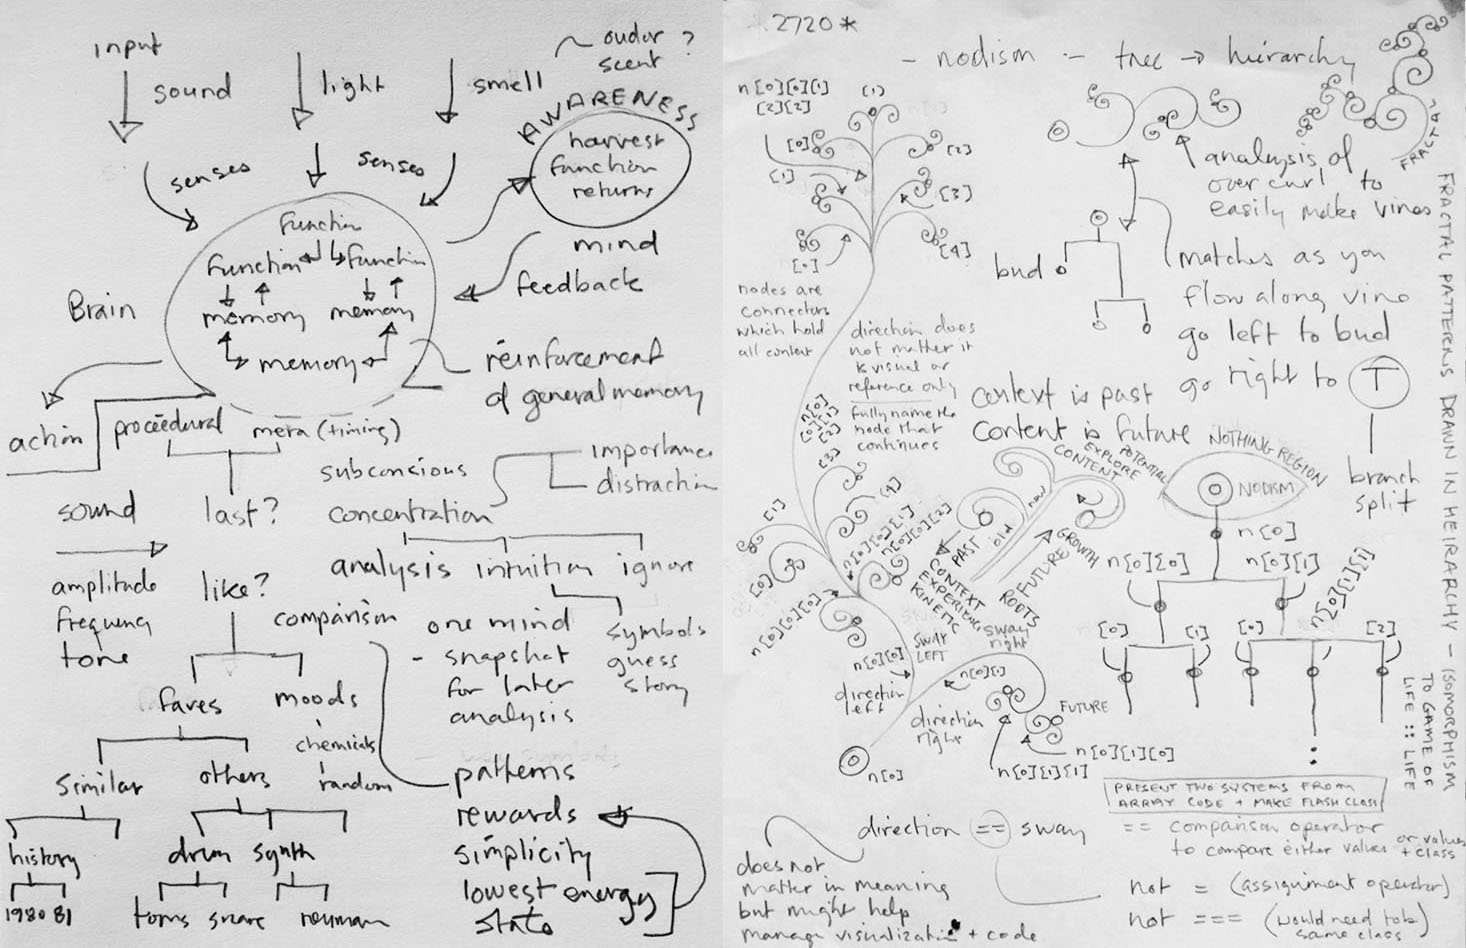 input
sound
light
smell
oudor ?
scent
AWARENESS
harvest
function
returns
senses
senses
mind
feedback
Brain
function
function
function
memory
memory
memory
reinforcement
of general memory
action
procedural
meta (timing)
subconsious
importance
distraction
sound
last?
concentration
amplitude
frequency
tone
like?
comparison
analysis
intuition
ignore
one mind
- snapshot
for later
analysis
symbols
guess
story
faves
moods
chemicals
random
similar
others
patterns
rewards
simplicity
lowest energy
state
history
drum
synth
1980 81
toms
snare
2720 *
- nodism - tree → heirarchy
n[0][0][1]
[2][2]
[1]
[0]
[2]
[1]
[3]
[0]
[4]
nodes are
connectors
which hold
all content
direction does
not matter it
is visual or
reference only
fully name the
node that
continues
FRACTAL
analysis of
over curl to
easily make vines
bud
matches as you
flow along vine
go left to bud
go right to T
branch
split
context is past
content is future
FRACTAL PATTERNS DRAWN IN HEIRARCHY - ISOMORPHISM
TO GAME OF
LIFE :: LIFE
NOTHING REGION
NODISM
EXPLORE
POTENTIAL
CONTENT
now
old
PAST
CONTEXT
EXPERIENCE
KINETIC
GROWTH
FUTURE
ROOTS
n[0]
n[0][0]
n[0][1]
n[0][1][1]
[0]
[1]
[0]
[2]
[3]
[4]
[1]
[0]
n[0][0][1]
n[0][0][2]
n[0][0][0]
n[0][0]
SWAY
LEFT
sway
right
direction
left
n[0][1]
direction
right
FUTURE
n[0][1][0]
n[0][1][1]
n[0]
PRESENT TWO SYSTEMS FROM
ARRAY CODE + MAKE FLASH CLASS
direction == sway
== comparison operator
to compare either values or values
+ class
does not
matter in meaning
but might help
manage visualization + code
not = (assignment operator)
not === (would need to be
same class)